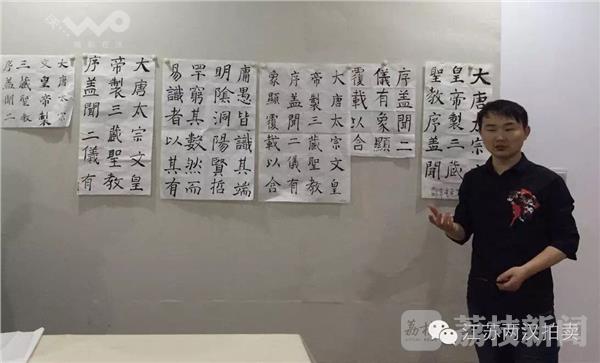 大唐太宗
皇帝製三藏
聖教序盖聞
序盖聞二
儀有象顯
覆載以合
大唐太宗文皇
帝製三藏聖教
序盖聞二儀有
象顯覆載以合
庸愚皆識其端
明陰洞陽賢哲
罕窮其數然而
易識者以其有
大唐太宗文皇
帝製三藏聖教
序盖聞二儀有
大唐太宗
文皇帝製
三藏聖教
序盖聞二
江苏两汉拍卖
荔枝新闻